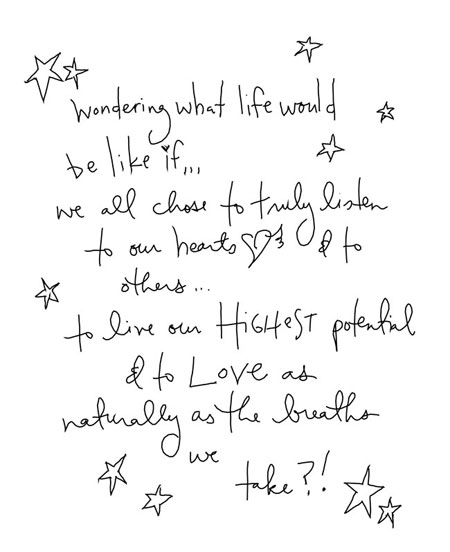 wondering what life would
be like if,,,
we all chose to truly listen
to our hearts & to
others...
to live our HiGHeST potential
& to Love as
naturally as the breaths
we
take?!